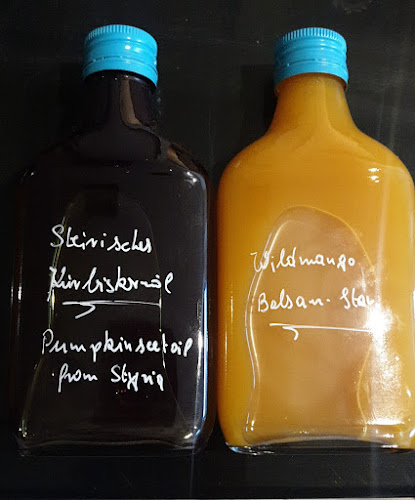 Steirisches
Kürbiskernöl
Pumpkinseetoil
from Styria
Wildmango
Balsam-Star